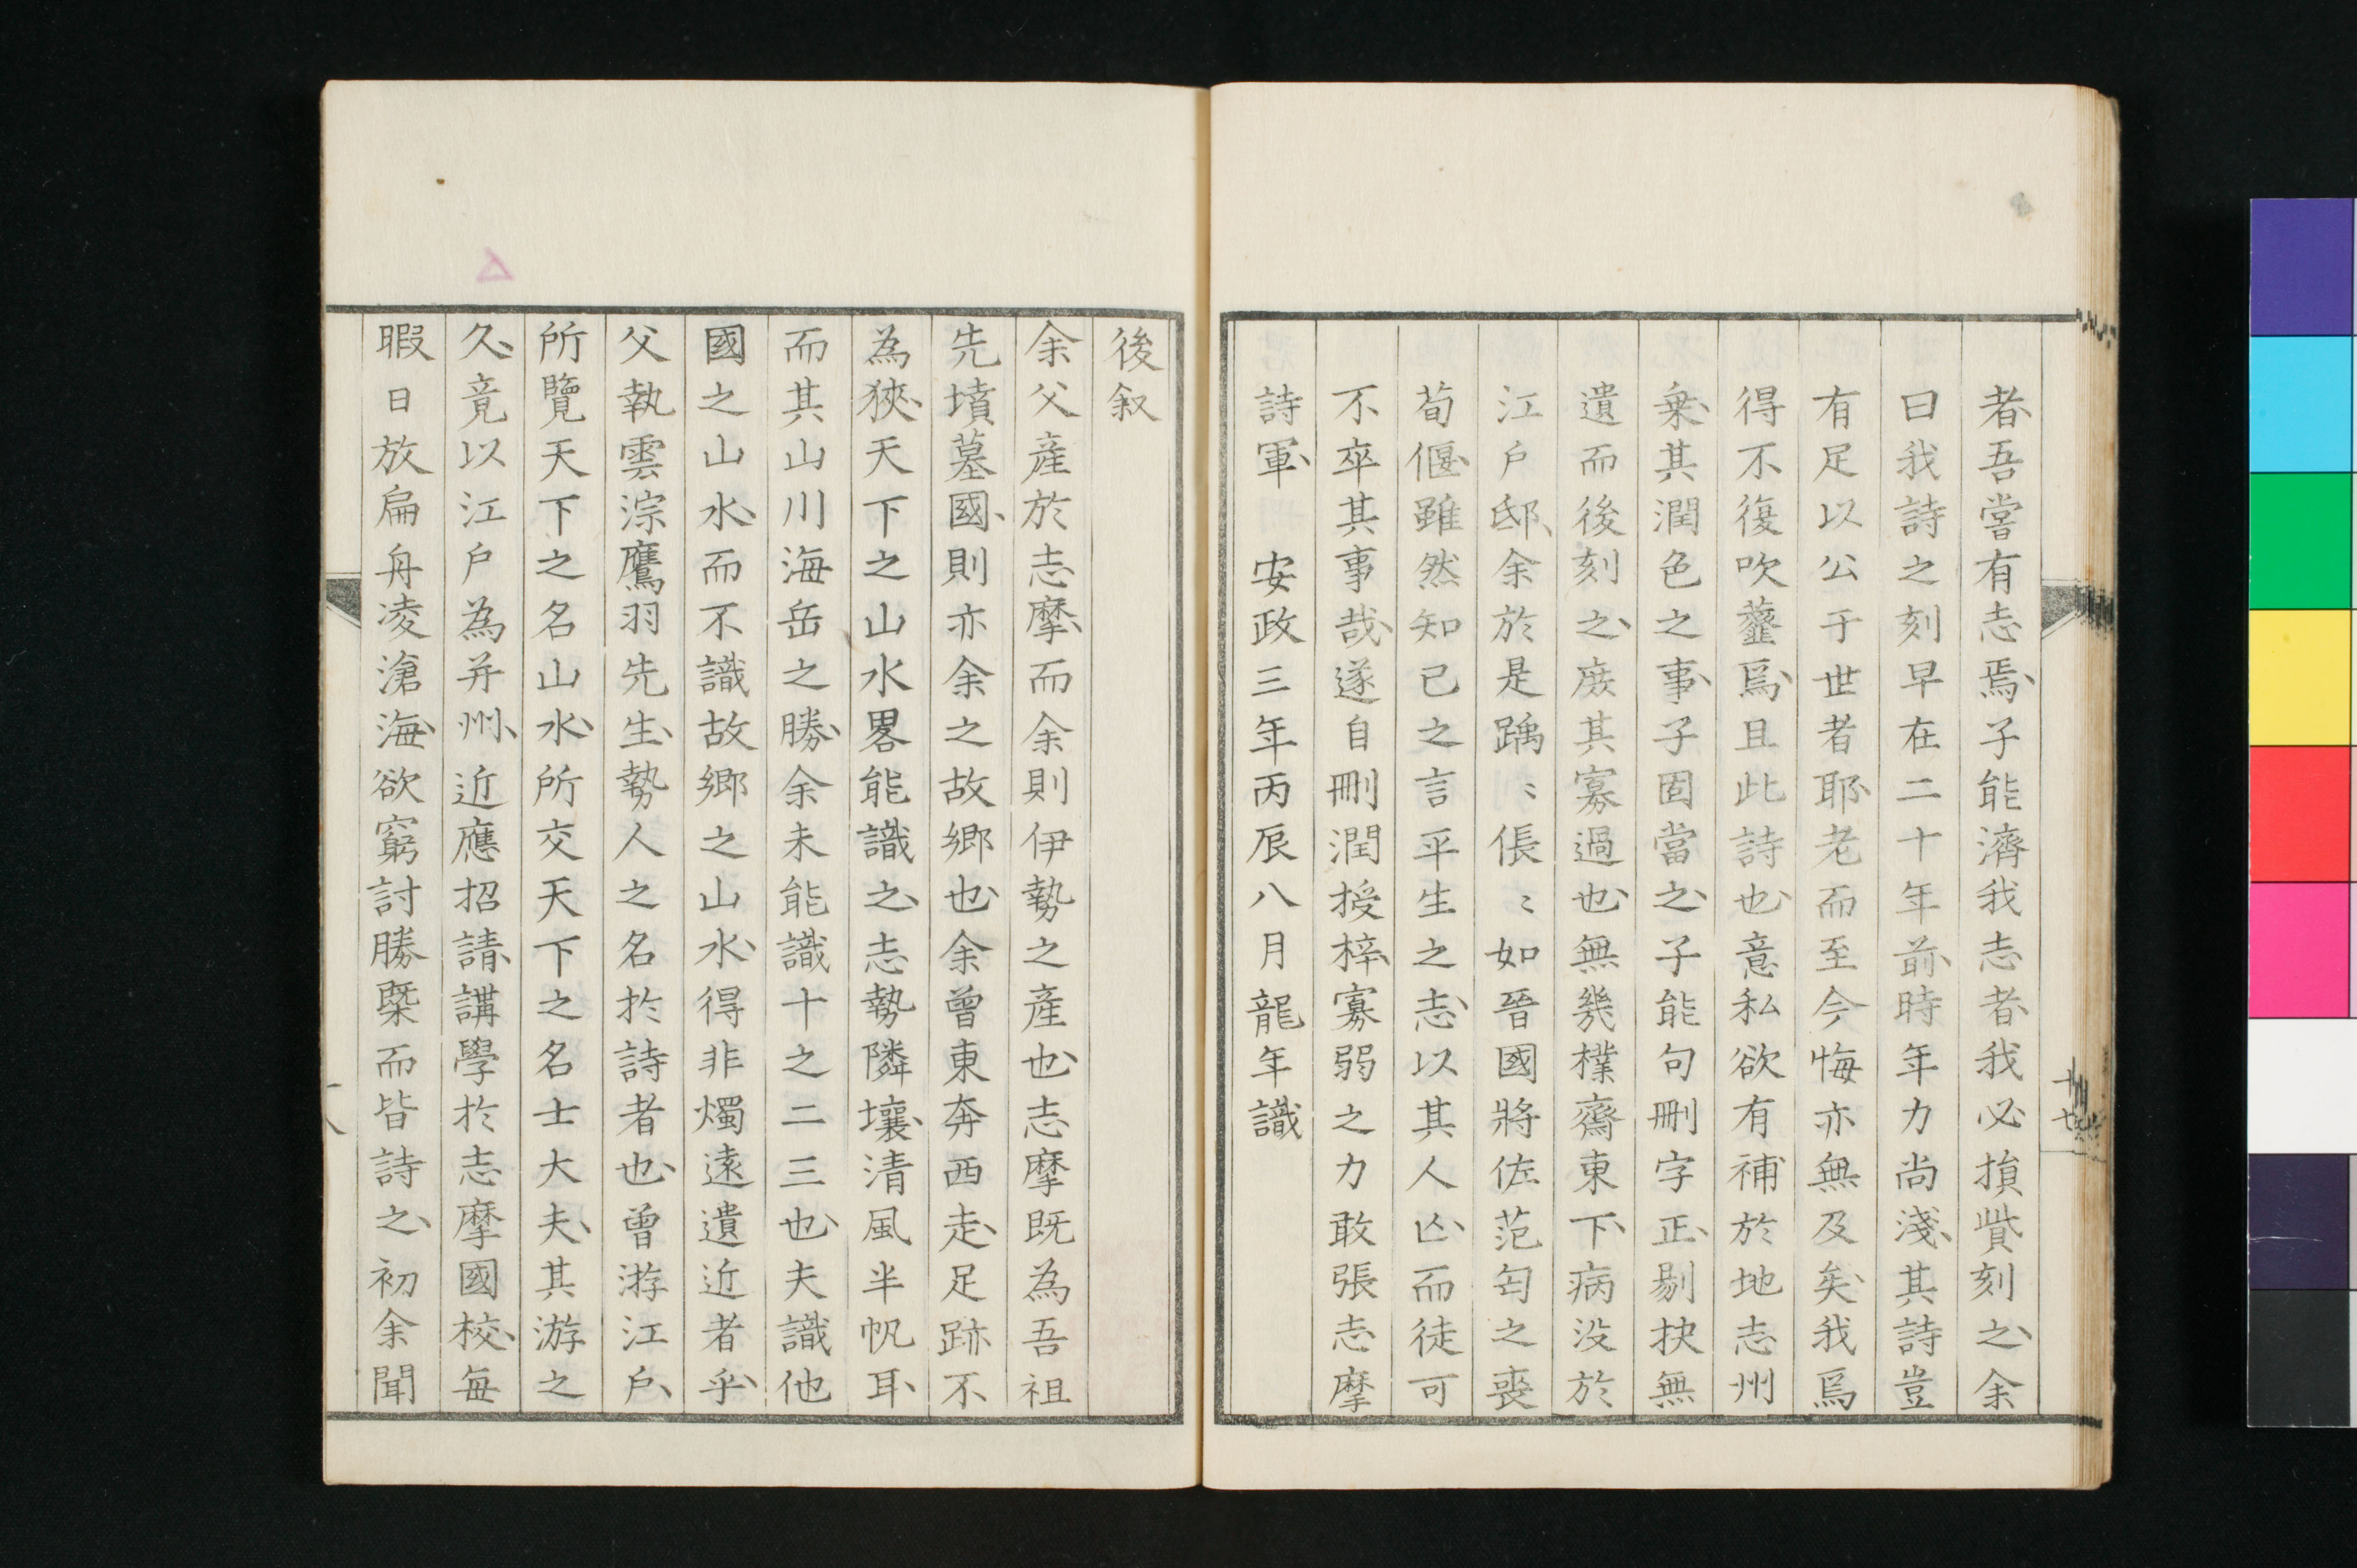 者吾嘗有志焉、子能濟我志者我必損貲刻之、余
曰我詩之刻早在二十年前、時年力尚淺、其詩豈
有足以公于世者耶、老而至今悔亦無及矣、我焉
得不復吹虀焉、且此詩也、意私欲有補於地志州
乗、其潤色之事、子固當之、子能句刪字正、剔抉無
遺而後刻之、庶其寡過也、無幾樸齋東下、病没於
江戶邸、余於是踽〻倀〻如晉國將佐范匄之喪
荀偃、雖然知己之言平生之志、以其人亾、而徒可
不卒其事哉、遂自刪潤授梓、寡弱之力敢張志摩
詩軍、　安政三年丙辰八月龍年識
後叙
余父産於志摩、而余則伊勢之産也、志摩既為吾祖
先墳墓國、則亦余之故鄉也、余曾東奔西走、足跡不
為狹、天下之山水畧能識之、志勢隣壤、清風半帆耳、
而其山川海岳之勝、余未能識十之二三也、夫識他
國之山水、而不識故鄉之山水、得非燭遠遺近者乎、
父執雲淙鷹羽先生、勢人之名於詩者也、曾游江戶、
所覽天下之名山水、所交天下之名士大夫、其游之
久、竟以江戶為并州、近應招請、講學於志摩國校、每
暇日放扁舟凌滄海、欲窮討勝槩而皆詩之、初余聞